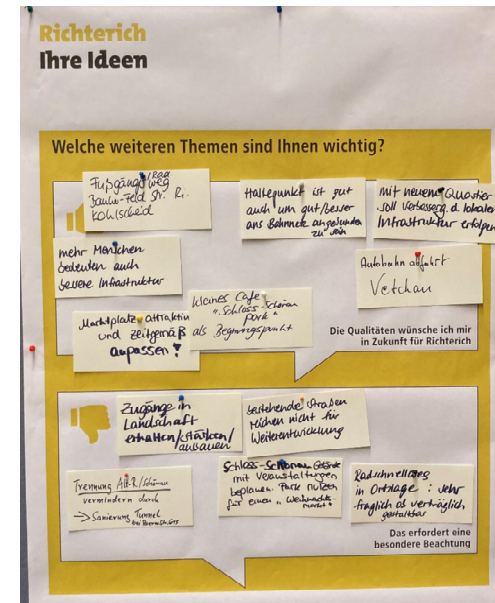 Richterich
Ihre Ideen
Welche weiteren Themen sind Ihnen wichtig?
Fußgänger/Rad
weg
Feld Str. R.
Kohlscheid
Haltepunkt ist gut
auch um gut/besser
ans Bahnnetz angebunden
zu sein
mit neuem Quartier
soll Verbesserg. d. lokalen
Infrastruktur erfolgen
mehr Menschen
bedeuten auch
bessere Infrastruktur
Autobahn abfahrt
Vetchau
Marktplatz attraktiv
und zeitgemäß
anpassen!
kleines Cafe
"Schloss-Schönau
park"
als Begegnungspunkt
Die Qualitäten wünsche ich mir
in Zukunft für Richterich
Zugänge in
Landschaft
erhalten/stärken/
ausbauen
bestehende Straßen
reichen nicht für
Weiterentwicklung
Trennung Alt-R./Schönau
vermindern durch
→ Sanierung Tunnel
Schloss-Schönau Gelände
mit Veranstaltungen
beplanen. Park nutzen
für einen "Weihnachts
markt"
Radschnellweg
in Ortslage: sehr
fraglich ob verträglich
gestaltbar
Das erfordert eine
besondere Beachtung